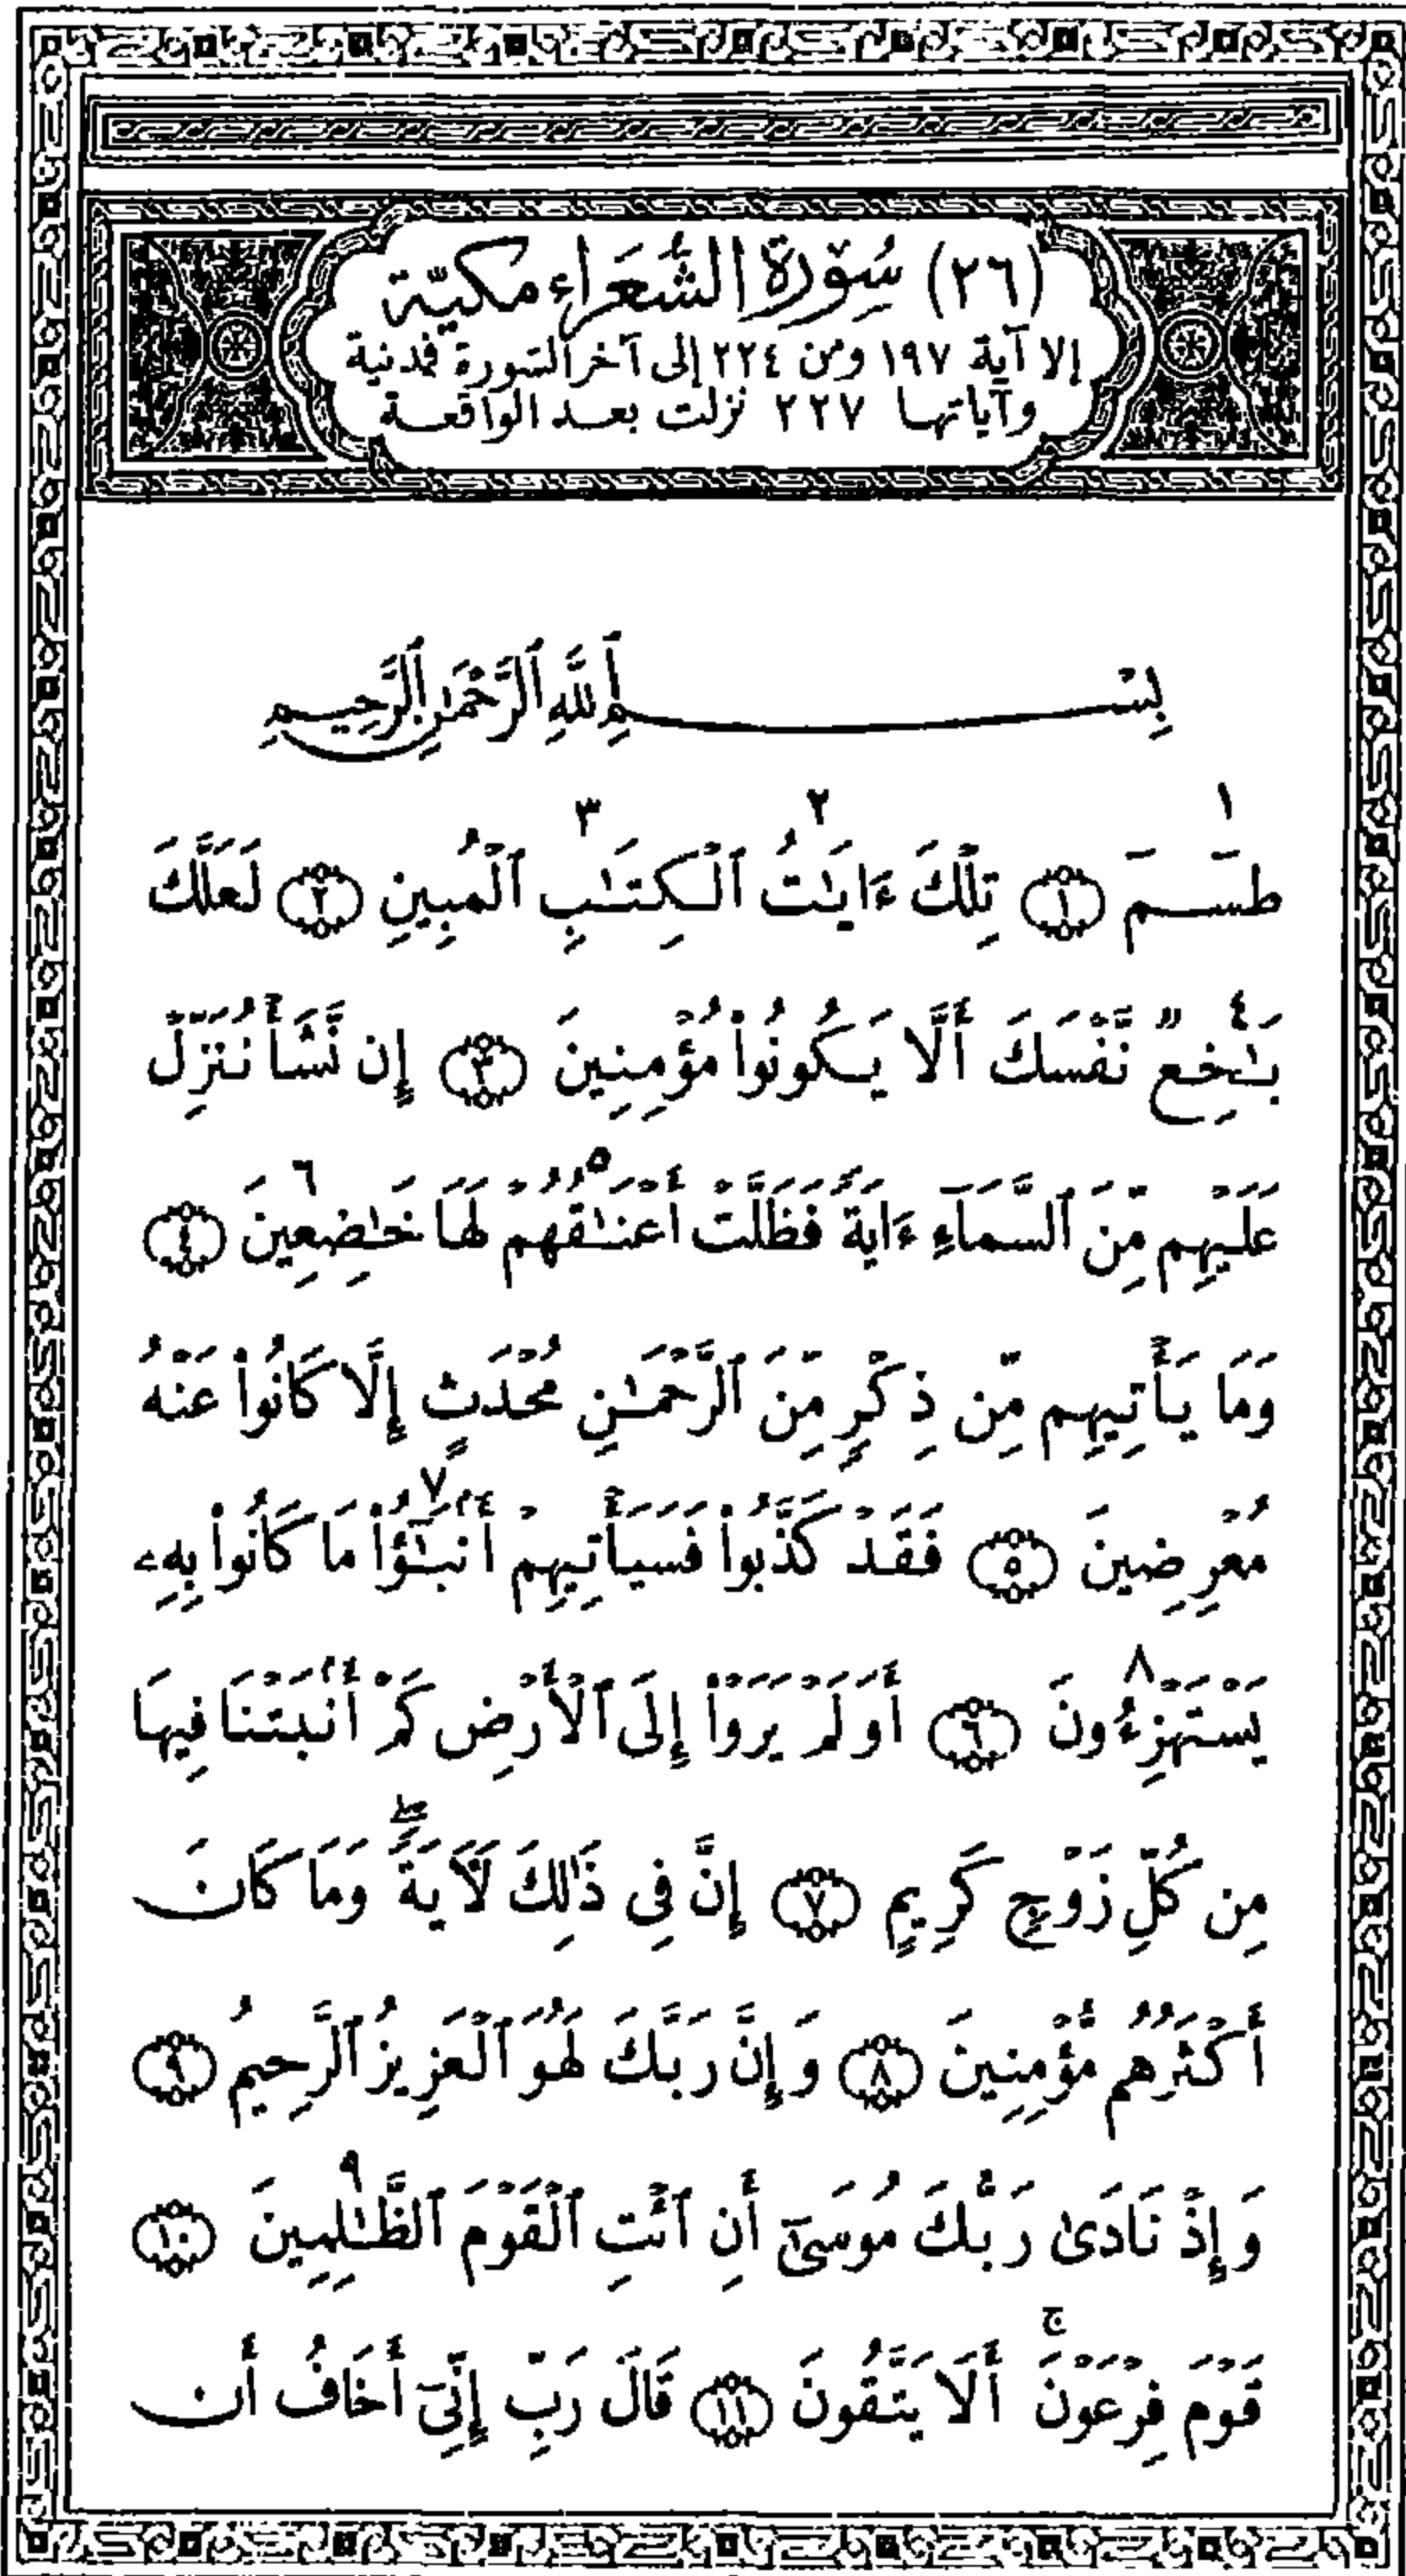 (٢٦) سُورَةُ الشُّعَرَاء مكيّة
إلا آية ١٩٧ ومن ٢٢٤ إلى آخر السورة فمدنية
وآياتها ٢٢٧ نزلت بعد الواقعة
بِسْمِ ٱللَّهِ ٱلرَّحْمَٰنِ ٱلرَّحِيمِ
١ ٢ ٣
طسٓمٓ ۝١ تِلْكَ ءَايَٰتُ ٱلْكِتَٰبِ ٱلْمُبِينِ ۝٢ لَعَلَّكَ
بَٰخِعٌ نَّفْسَكَ أَلَّا يَكُونُوا۟ مُؤْمِنِينَ ۝٣ إِن نَّشَأْ نُنَزِّلْ
٤ ٥ ٦
عَلَيْهِم مِّنَ ٱلسَّمَآءِ ءَايَةً فَظَلَّتْ أَعْنَٰقُهُمْ لَهَا خَٰضِعِينَ ۝٤
وَمَا يَأْتِيهِم مِّن ذِكْرٍ مِّنَ ٱلرَّحْمَٰنِ مُحْدَثٍ إِلَّا كَانُوا۟ عَنْهُ
٧
مُعْرِضِينَ ۝٥ فَقَدْ كَذَّبُوا۟ فَسَيَأْتِيهِمْ أَنۢبَٰٓؤُا۟ مَا كَانُوا۟ بِهِۦ
٨
يَسْتَهْزِءُونَ ۝٦ أَوَلَمْ يَرَوْا۟ إِلَى ٱلْأَرْضِ كَمْ أَنۢبَتْنَا فِيهَا
مِن كُلِّ زَوْجٍ كَرِيمٍ ۝٧ إِنَّ فِى ذَٰلِكَ لَءَايَةًۖ وَمَا كَانَ
أَكْثَرُهُم مُّؤْمِنِينَ ۝٨ وَإِنَّ رَبَّكَ لَهُوَ ٱلْعَزِيزُ ٱلرَّحِيمُ ۝٩
٩
وَإِذْ نَادَىٰ رَبُّكَ مُوسَىٰٓ أَنِ ٱئْتِ ٱلْقَوْمَ ٱلظَّٰلِمِينَ ۝١٠
قَوْمَ فِرْعَوْنَۚ أَلَا يَتَّقُونَ ۝١١ قَالَ رَبِّ إِنِّىٓ أَخَافُ أَن